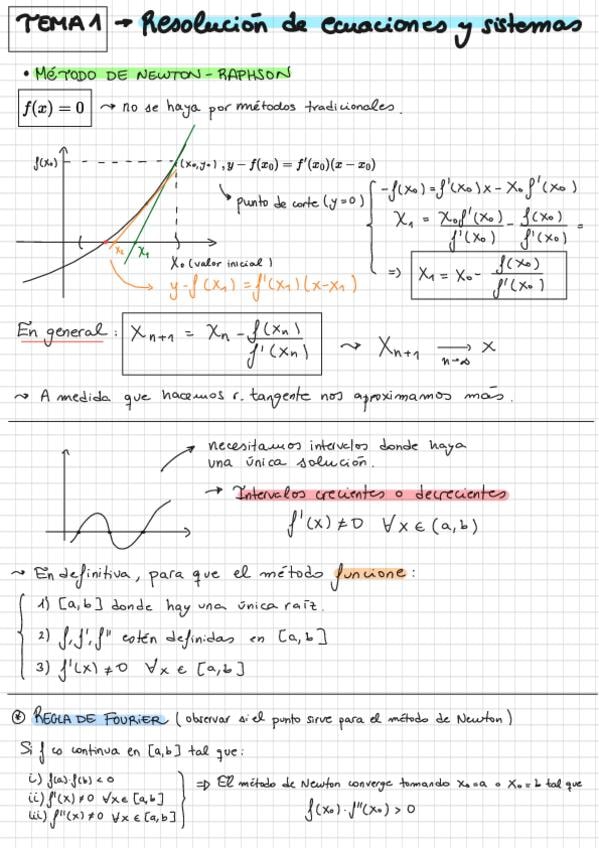 TEMA 1 → Resolución de ecuaciones y sistemas
• MÉTODO DE NEWTON-RAPHSON
f(x) = 0 → no se haya por métodos tradicionales.
f(x₀) (x₀,y₀), y − f(x₀) = f'(x₀)(x − x₀)
punto de corte (y=0)
-f(x₀)=f'(x₀)x - x₀f'(x₀)
x₁ = x₀f'(x₀)/f'(x₀) - f(x₀)/f'(x₀) =
⇒ x₁ = x₀ - f(x₀)/f'(x₀)
x₂ x₁
x₀ (valor inicial)
y-f(x₁)=f'(x₁)(x-x₁)
En general: Xₙ₊₁ = Xₙ - f(xₙ)/f'(xₙ) ⤳ Xₙ₊₁ → x
n→∞
⤳ A medida que hacemos r. tangente nos aproximamos más.
necesitamos intervalos donde haya
una única solución.
→ Intervalos crecientes o decrecientes
f'(x) ≠ 0 ∀x ∈ (a,b)
⤳ En definitiva, para que el método funcione:
1) [a,b] donde hay una única raíz.
2) f, f', f'' estén definidas en [a,b]
3) f'(x) ≠ 0 ∀x ∈ [a,b]
⊛ REGLA DE FOURIER (observar si el punto sirve para el método de Newton)
Si f es continua en [a,b] tal que:
i) f(a)·f(b) < 0
ii) f'(x) ≠ 0 ∀x ∈ [a,b]
iii) f''(x) ≠ 0 ∀x ∈ [a,b]
⇒ El método de Newton converge tomando x₀=a o x₀=b tal que
f(x₀)·f''(x₀) > 0